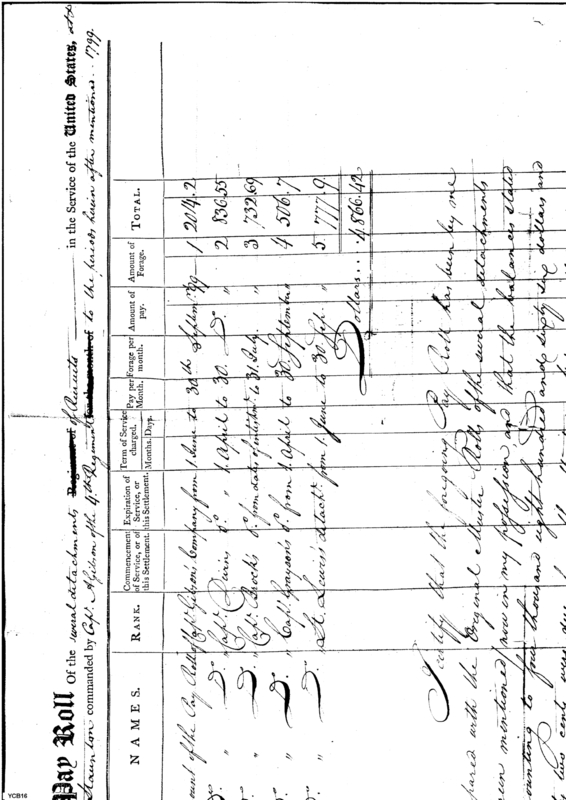 Pay Roll Of the several detachments Regiment of Recruits in the Service of the United States, at
Staunton commanded by Capt. A Gibson of the 4th Regiment for the month of to the periods herein after mentioned.. 1799.
NAMES. RANK. Commencement of Service, or of this Settlement. Expiration of Service, or this Settlement. Term of Service charged. Months. Days. Pay per Month. Forage per month. Amount of pay. Amount of Forage. TOTAL.
ount of the Pay Roll of Capt. Gibson's Company from 1 June to 30th Septemr. 99 — 1 2014.2
Do. " Do. " Capt. do. " 1. April to 30. Do. " 2 836.55
Do. " Do. " Capt. Brock's do. from dates of to 31. July. " 3 732.69
Do. " Do. " Capt. Grayson's do. from 1. April to 30. September " 4 506.7
Do. " Do. " Lt. Lewis's detacht. from 1. June to 30 Sep. " 5. 777.9.
Dollars... 4,866.42
I certify that the foregoing Pay Roll has been by me
pared with the Original Muster Rolls of the several detachments
ein mentioned now in my possession and that the balances stated
ounting to four thousand eight hundred and sixty six dollars and
two cents were due
YCB16